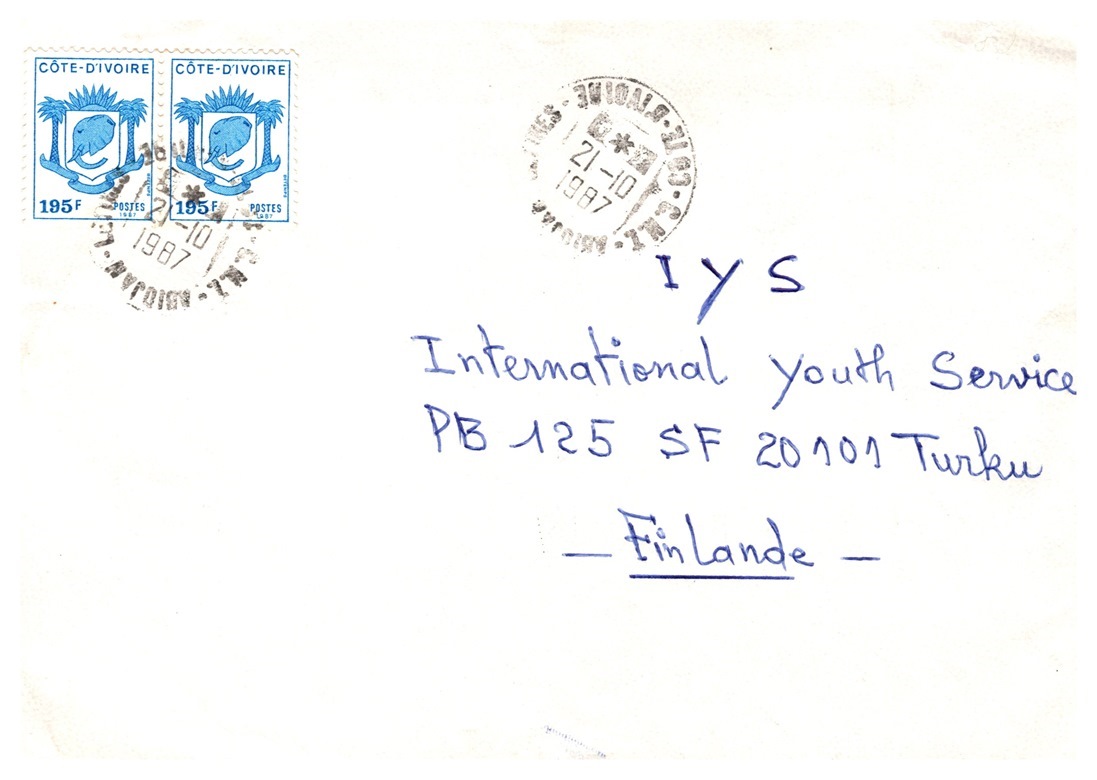 CÔTE-D'IVOIRE CÔTE-D'IVOIRE
195F POSTES 1987 195F POSTES 1987
21-10
1987
C.M.I. ABIDJAN
21-10
1987
C.M.I. ABIDJAN
IYS
International Youth Service
PB 125 SF 20101 Turku
— Finlande —